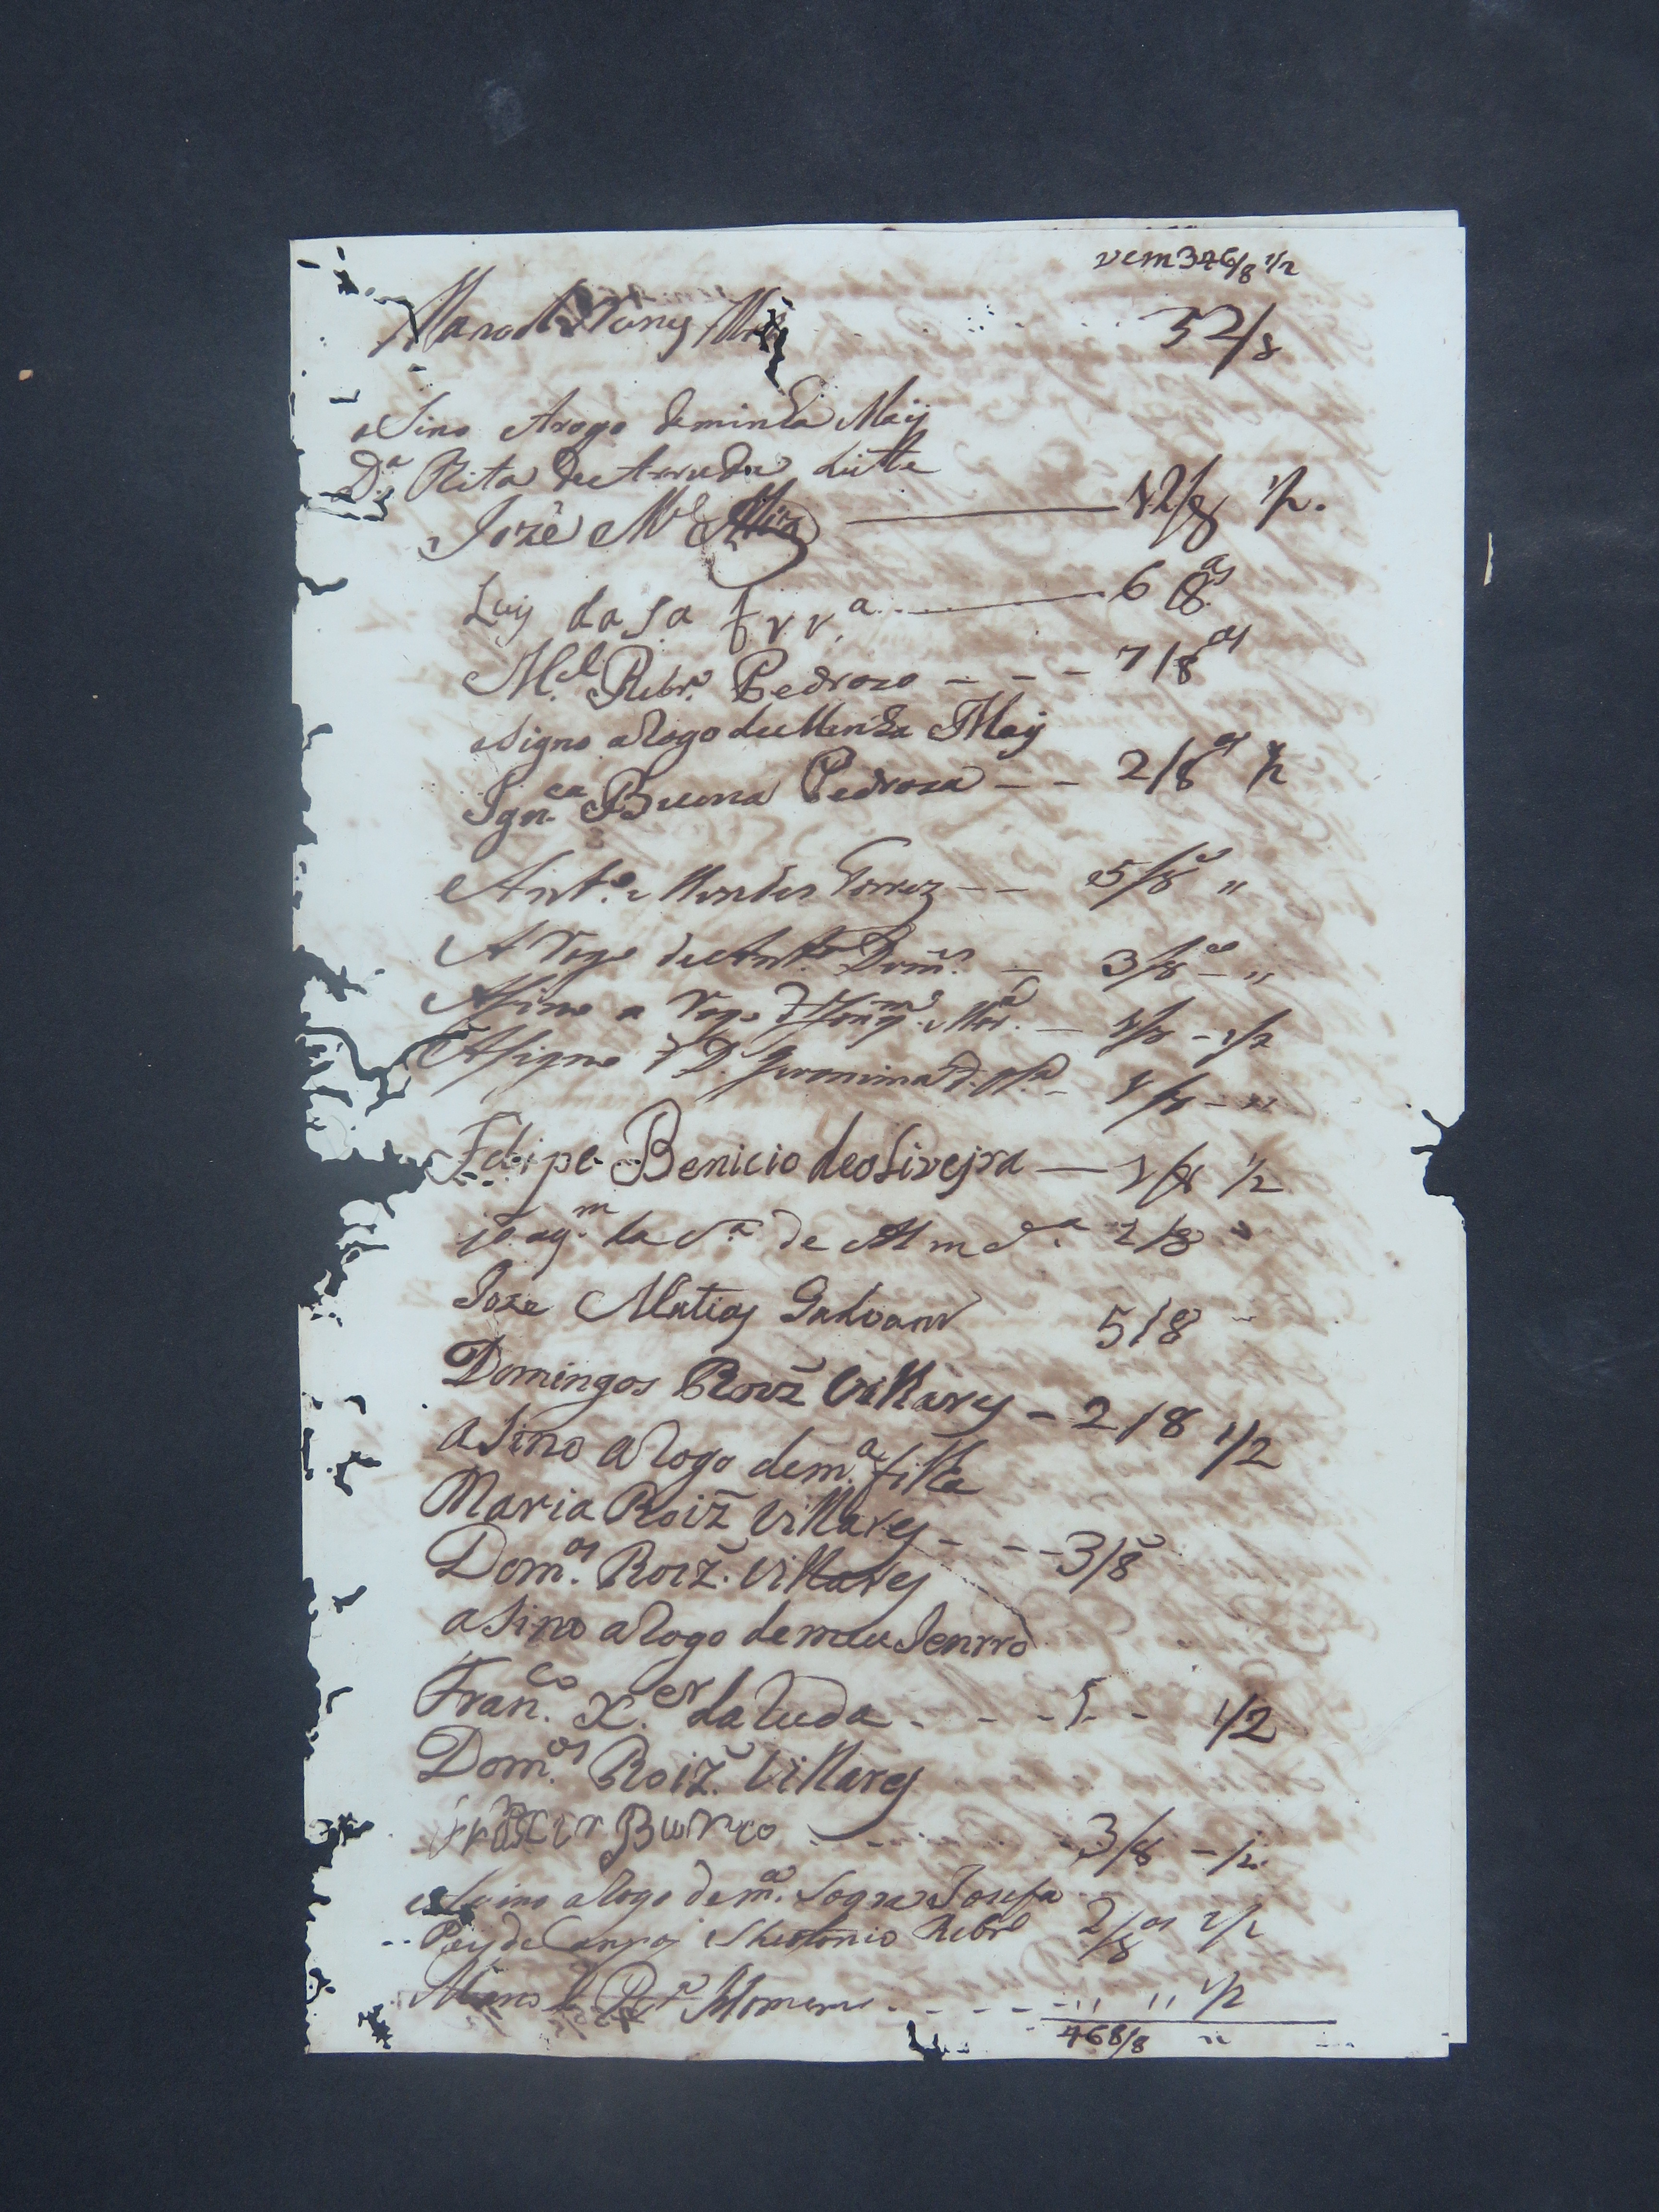 vem 346/8 1/2
32/8
Asino Arogo deminha Maÿ
D.ª Rita de Arruda Leitte
Jozê M.el 12/8 1/2.
Luis da Sª frr.ª 6 8.as
M.el Ribr.º Pedrozo - - - 7/8as
Asigno aRogo de Minha Maÿ
Ign.ca Buena Pedroza - - 2/8as 1/2
Ant.º Mendes Torrez - - 5/8as "
A rogo de Ant.º Dom.s - 3/8as - "
Asino a rogo - 1/2
Asigno D. Jeronima
Felipe Benicio deoliveyra — 1/2
joaqm da Sª de Almdª 2/8
Joze Matias Galvam 5/8
Domingos Roiz̃ Villarej - 2/8 1/2
aSino aRogo dem.ª filha
Maria Roiz̃ Villarej - - - 3/8
Dom.os Roiz̃. Villarej
aSino aRogo demeu Jenrro
Fran.co X.er daCuda - - - 5 - - 1/2
Dom.os Roiz̃. Villarej
Bueno - - - 3/8 - 1/2
aRogo dem.ª Sogra Josefa
Pais de Campos Theotonio Ribr.º 2/8as 1/2
- - - - " " 1/2
468/8 "